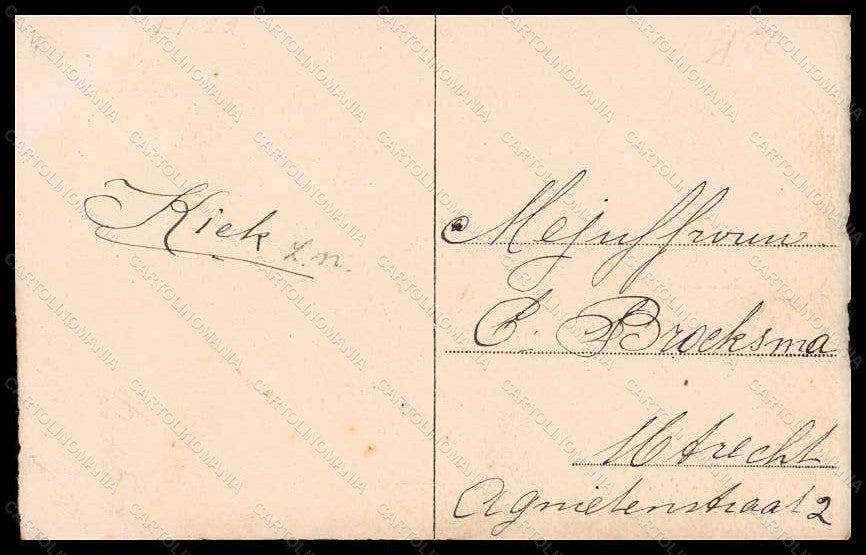 Kiek
Mejuffrouw
B. Broeksma
Utrecht
Agnietenstraat 2